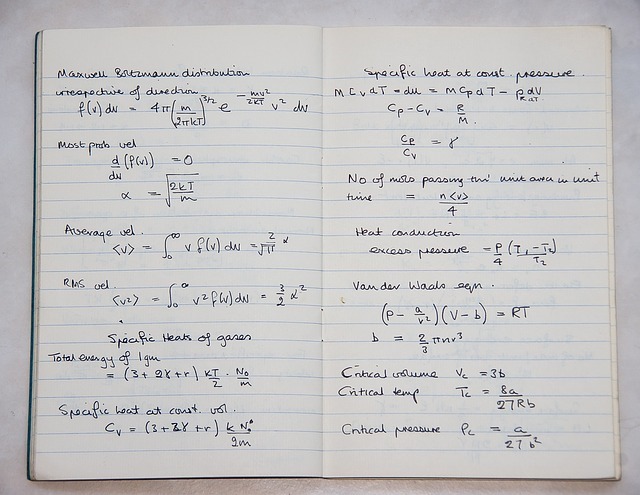 Maxwell Boltzmann distribution
irrespective of direction
f(v) dv = 4π(m/2πkT)^3/2 e^-mv²/2kT v² dv
Most prob vel
d/dv (f(v)) = 0
α = √(2kT/m)
Average vel.
<v> = ∫₀^∞ v f(v) dv = 2/√π α
RMS vel.
<v²> = ∫₀^∞ v² f(v) dv = 3/2 α²
Specific Heats of gases
Total energy of 1gm
= (3 + 2γ + r) kT/2 · N₀/m
Specific heat at const. vol.
Cv = (3 + 2γ + r) k N₀/2m
Specific heat at const. pressure.
M Cv dT = du = M Cp dT - p dV
R dT
Cp - Cv = R/M.
Cp/Cv = γ
No of mols passing thro' unit area in unit
time = n<v>/4
Heat conduction
excess pressure = P/4 (T₁ - T₂)/T₂
Van der Waals eqn.
(P - a/v²)(V - b) = RT
b = 2/3 π n r³
Critical volume Vc = 3b
Critical temp Tc = 8a/27Rb
Critical pressure Pc = a/27b²